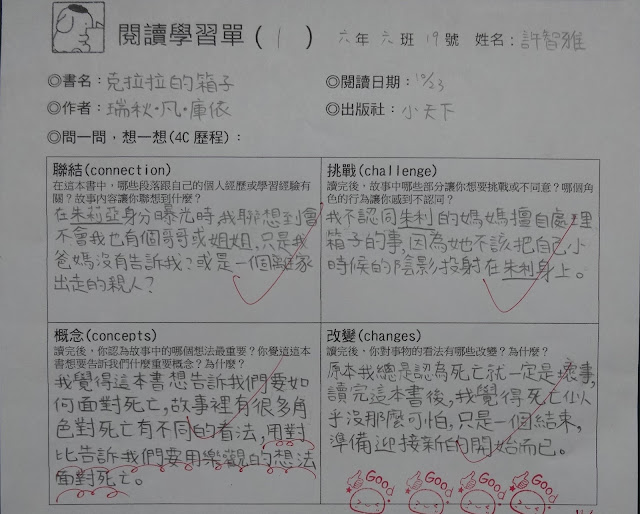 閱讀學習單(1) 六年六班19號 姓名:許智雅
◎書名:克拉拉的箱子 ◎閱讀日期:10/23
◎作者:瑞秋・凡・庫依 ◎出版社:小天下
◎問一問,想一想(4C 歷程):
聯結(connection)
在這本書中,哪些段落跟自己的個人經歷或學習經驗有
關?故事內容讓你聯想到什麼?
在朱莉亞身分曝光時,我聯想到會
不會我也有個哥哥或姐姐,只是我
爸媽沒有告訴我?或是一個離家
出走的親人?
挑戰(challenge)
讀完後,故事中哪些部分讓你想要挑戰或不同意?哪個角
色的行為讓你感到不認同?
我不認同朱利的媽媽擅自處理
箱子的事,因為她不該把自己小
時候的陰影投射在朱利身上。
概念(concepts)
讀完後,你認為故事中的哪個想法最重要?你覺這這本
書想要告訴我們什麼重要概念?為什麼?
我覺得這本書想告訴我們要如
何面對死亡,故事裡有很多角
色對死亡有不同的看法,用對
比告訴我們要用樂觀的想法
面對死亡。
改變(changes)
讀完後,你對事物的看法有哪些改變?為什麼?
原本我總是認為死亡就一定是壞事,
讀完這本書後,我覺得死亡似
乎沒那麼可怕,只是一個結束,
準備迎接新的開始而已。
Good Good Good Good